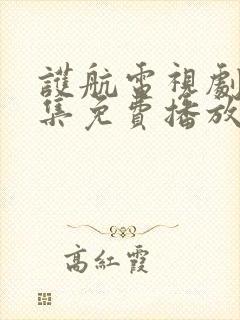 護航電視劇
集免費播放
高紅霞